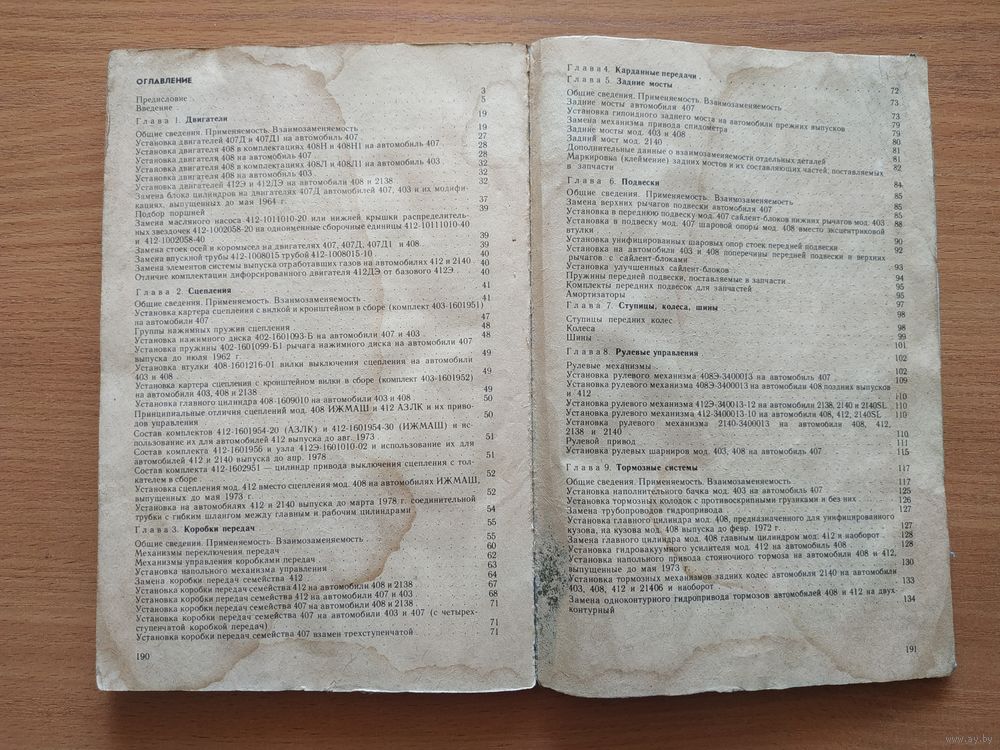 ОГЛАВЛЕНИЕ
Предисловие 3
Введение 5
Глава 1. Двигатели 19
Общие сведения. Применяемость. Взаимозаменяемость 19
Установка двигателей 407Д и 407Д1 на автомобиль 407 27
Установка двигателя 408 в комплектациях 408Н и 408Н1 на автомобиль 407 28
Установка двигателя 408 на автомобиль 407 28
Установка двигателя 408 в комплектациях 408Л и 408Л1 на автомобиль 403 32
Установка двигателя 408 на автомобиль 403 32
Установка двигателей 412Э и 412ДЭ на автомобили 408 и 2138 32
Замена блока цилиндров на двигателях 407Д автомобилей 407, 403 и их модификациях, выпущенных до мая 1964 г. 37
Подбор поршней 39
Замена масляного насоса 412-1011010-20 или нижней крышки распределительных звездочек 412-1002058-20 на одноименные сборочные единицы 412-10111010-40
и 412-1002058-40 39
Замена стоек осей и коромысел на двигателях 407, 407Д, 407Д1 и 408 39
Замена впускной трубы 412-1008015 трубой 412-1008015-10 40
Замена элементов системы выпуска отработавших газов на автомобилях 412 и 2140 40
Отличие комплектации дифорсированного двигателя 412ДЭ от базового 412Э 40
Глава 2. Сцепления 41
Общие сведения. Применяемость. Взаимозаменяемость 41
Установка картера сцепления с вилкой и кронштейном в сборе (комплект 403-1601951)
на автомобили 407 47
Группы нажимных пружин сцепления 48
Установка нажимного диска 402-1601093-Б на автомобили 407 и 403 48
Установка пружины 402-1601099-Б1 рычага нажимного диска на автомобили 407
выпуска до июля 1962 г. 49
Установка втулки 408-1601216-01 вилки выключения сцепления на автомобили
403 и 408 49
Установка картера сцепления с кронштейном вилки в сборе (комплект 403-1601952)
на автомобили 403, 408 и 2138 49
Установка главного цилиндра 408-1609010 на автомобили 403 и 408 50
Принципиальные отличия сцеплений мод. 408 ИЖМАШ и 412 АЗЛК и их приводов управления 50
Состав комплектов 412-1601954-20 (АЗЛК) и 412-1601954-30 (ИЖМАШ) и использование их для автомобилей 412 выпуска до авг. 1973 51
Состав комплекта 412-1601956 и узла 412Э-1601010-02 и использование их для
автомобилей 412 и 2140 выпуска до апр. 1978 51
Состав комплекта 412-1602951 — цилиндр привода выключения сцепления с толкателем в сборе 52
Установка сцепления мод. 412 вместо сцепления мод. 408 на автомобилях ИЖМАШ,
выпущенных до мая 1973 г. 52
Установка на автомобилях 412 и 2140 выпуска до марта 1978 г. соединительной
трубки с гибким шлангом между главным и рабочим цилиндрами 54
Глава 3. Коробки передач 55
Общие сведения. Применяемость. Взаимозаменяемость 55
Механизмы переключения передач 60
Механизмы управления коробками передач 62
Установка напольного механизма управления 63
Замена коробки передач семейства 412 64
Установка коробки передач семейства 412 на автомобили 408 и 2138 67
Установка коробки передач семейства 412 на автомобили 407 и 403 68
Установка коробки передач семейства 407 на автомобили 408 и 2138 71
Установка коробки передач семейства 407 на автомобили 403 и 407 (с четырехступенчатой коробкой передач) 71
Установка коробки передач семейства 407 взамен трехступенчатой 71
190
Глава 4. Карданные передачи 72
Глава 5. Задние мосты
Общие сведения. Применяемость. Взаимозаменяемость 73
Задние мосты автомобиля 407 73
Установка гипоидного заднего моста на автомобили прежних выпусков 79
Замена механизма привода спидометра 79
Задние мосты мод. 403 и 408 80
Задний мост мод. 2140 81
Дополнительные данные о взаимозаменяемости отдельных деталей 81
Маркировка (клеймение) задних мостов и их составляющих частей, поставляемых
в запчасти 82
Глава 6. Подвески 84
Общие сведения. Применяемость. Взаимозаменяемость 84
Замена верхних рычагов подвески автомобиля 407 85
Установка в переднюю подвеску мод. 407 сайлент-блоков нижних рычагов мод. 403 85
Установка в подвеску мод. 407 шаровой опоры мод. 408 вместо эксцентриковой
втулки 88
Установка унифицированных шаровых опор стоек передней подвески 90
Установка на автомобили 403 и 408 поперечины передней подвески и верхних
рычагов с сайлент-блоками 92
Установка улучшенных сайлент-блоков 93
Пружины передней подвески, поставляемые в запчасти 94
Комплекты передних подвесок для запчастей 95
Амортизаторы 95
Глава 7. Ступицы, колеса, шины 97
Ступицы передних колес 98
Колеса 98
Шины 99
101
Глава 8. Рулевые управления 102
Рулевые механизмы 102
Установка рулевого механизма 408Э-3400013 на автомобиль 407 109
Установка рулевого механизма 408Э-3400013 на автомобили 408 поздних выпусков
и 412 110
Установка рулевого механизма 412Э-3400013-12 на автомобили 2138, 2140 и 2140SL 110
Установка рулевого механизма 412-3400013-10 на автомобили 408, 412, 2140SL 110
Установка рулевого механизма 2140-3400013 на автомобили 408, 412,
2138 и 2140 110
Рулевой привод 111
Установка рулевых шарниров мод. 403, 408 на автомобиль 407 115
Глава 9. Тормозные системы 117
Общие сведения. Применяемость. Взаимозаменяемость 117
Установка наполнительного бачка мод. 403 на автомобиль 407 125
Установка тормозных колодок с противоскрипными грузиками и без них 126
Замена трубопроводов гидропривода 127
Установка главного цилиндра мод. 408, предназначенного для унифицированного
кузова, на кузова мод. 408 выпуска до февр. 1972 г. 127
Замена главного цилиндра мод. 408 главным цилиндром мод. 412 и наоборот 128
Установка гидровакуумного усилителя мод. 412 на автомобиль 408
Установка напольного привода стояночного тормоза на автомобили 408 и 412,
выпущенные до мая 1973 130
Установка тормозных механизмов задних колес автомобиля 2140 на автомобили
403, 408, 412 и 21406 и наоборот 133
Замена одноконтурного гидропривода тормозов автомобилей 408 и 412 на двухконтурный 134
191
www.ay.by